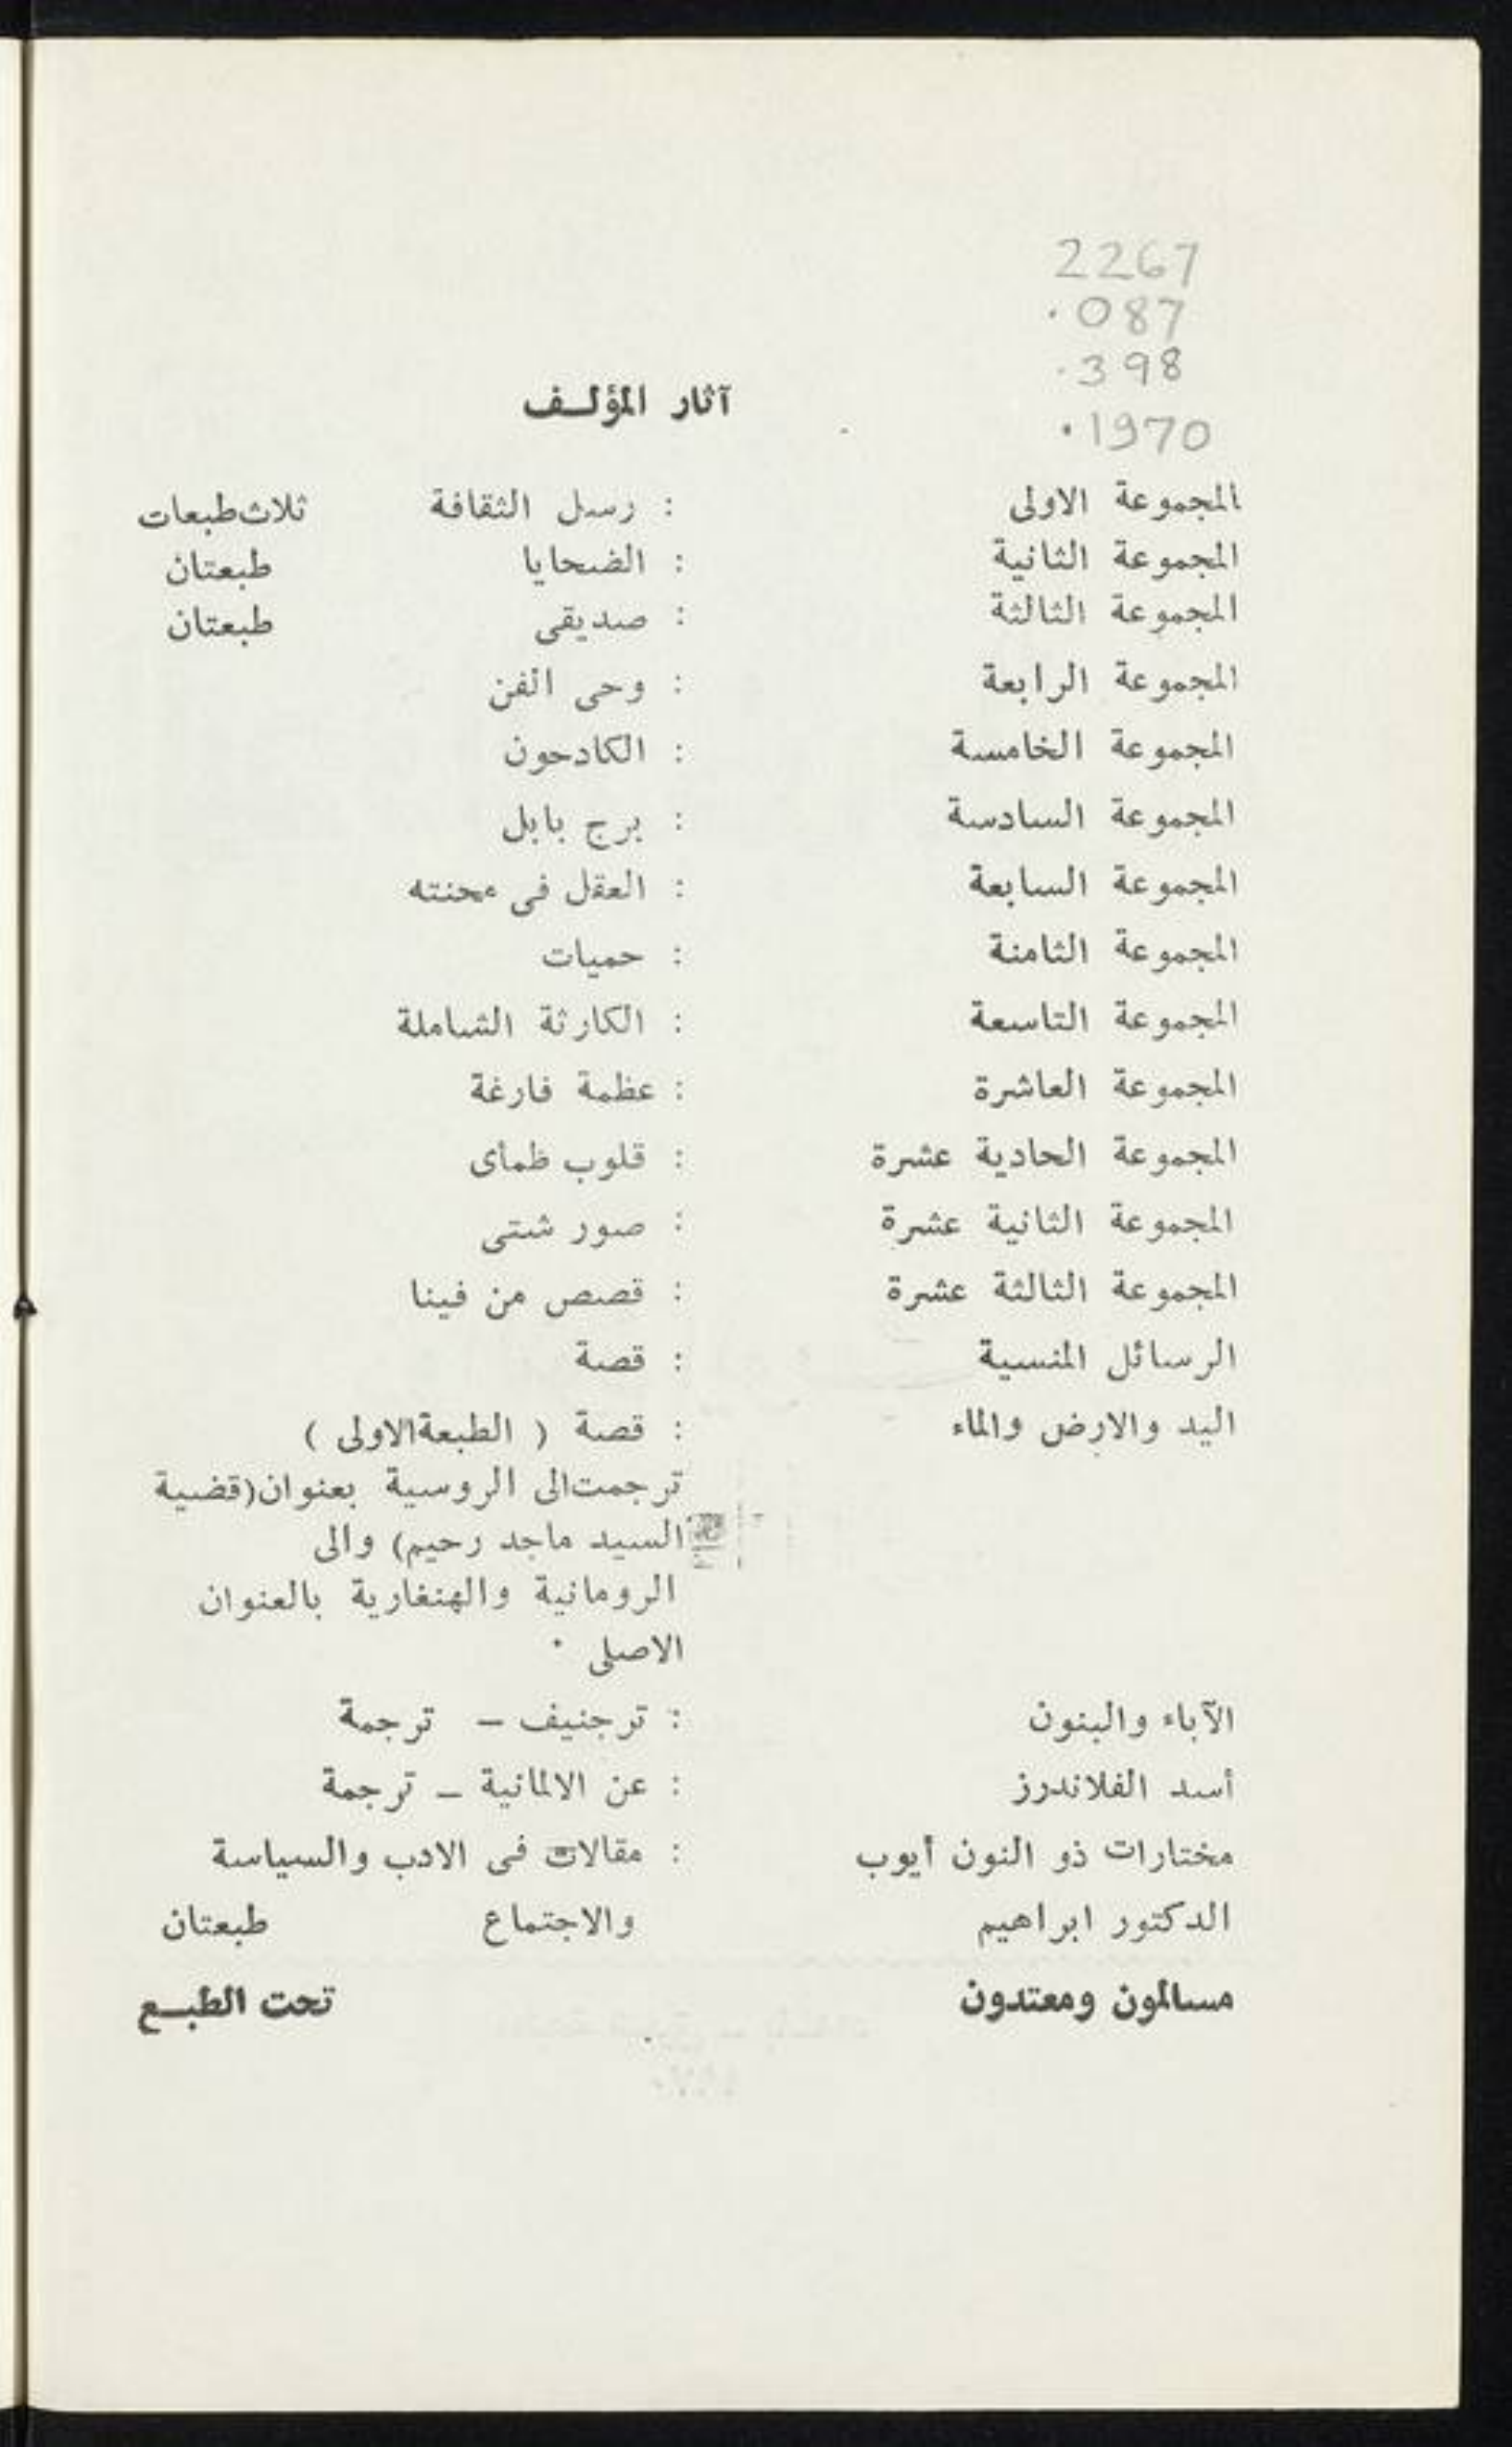 2267
.087
.398
.1970
آثار المؤلـف
المجموعة الاولى : رسل الثقافة ثلاث‌طبعات
المجموعة الثانية : الضحايا طبعتان
المجموعة الثالثة : صديقى طبعتان
المجموعة الرابعة : وحى الفن
المجموعة الخامسة : الكادحون
المجموعة السادسة : برج بابل
المجموعة السابعة : العقل فى محنته
المجموعة الثامنة : حميات
المجموعة التاسعة : الكارثة الشاملة
المجموعة العاشرة : عظمة فارغة
المجموعة الحادية عشرة : قلوب ظمأى
المجموعة الثانية عشرة : صور شتى
المجموعة الثالثة عشرة : قصص من فينا
الرسائل المنسية : قصة
اليد والارض والماء : قصة ( الطبعةالاولى )
ترجمت‌الى الروسية بعنوان(قضية
السيد ماجد رحيم) والى
الرومانية والهنغارية بالعنوان
الاصلى ٠
الآباء والبنون : ترجنيف – ترجمة
أسد الفلاندرز : عن الالمانية – ترجمة
مختارات ذو النون أيوب : مقالات فى الادب والسياسة
الدكتور ابراهيم والاجتماع طبعتان
مسالمون ومعتدون تحت الطبـع